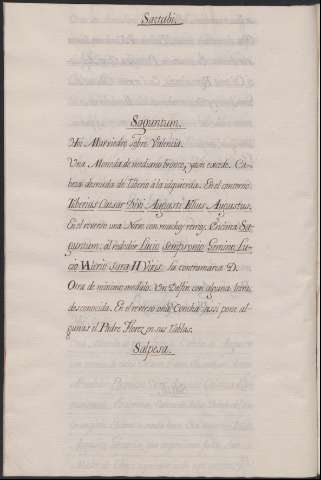 Sactabi.
Saguntum.
Murviedro sobre Valencia.
Una Moneda de mediano bronce, y aun excede. Ca-
beza desnuda de Tiberio á la izquierda. En el contorno
Tiberius Caesar Divi Augusti Filius Augustus.
En el reverso una Nave con mucho remo. Encima Sa-
guntum: al rededor Lucio Sempronio Gemino Lu-
cio Valerio Sura II Viris. la contramarca D.
Otra de minimo modulo. Un Delfin con alguna letra
desconocida. En el reverso una Concha: assi pone al-
gunas el Padre Florez en sus Tablas.
Salpesa.